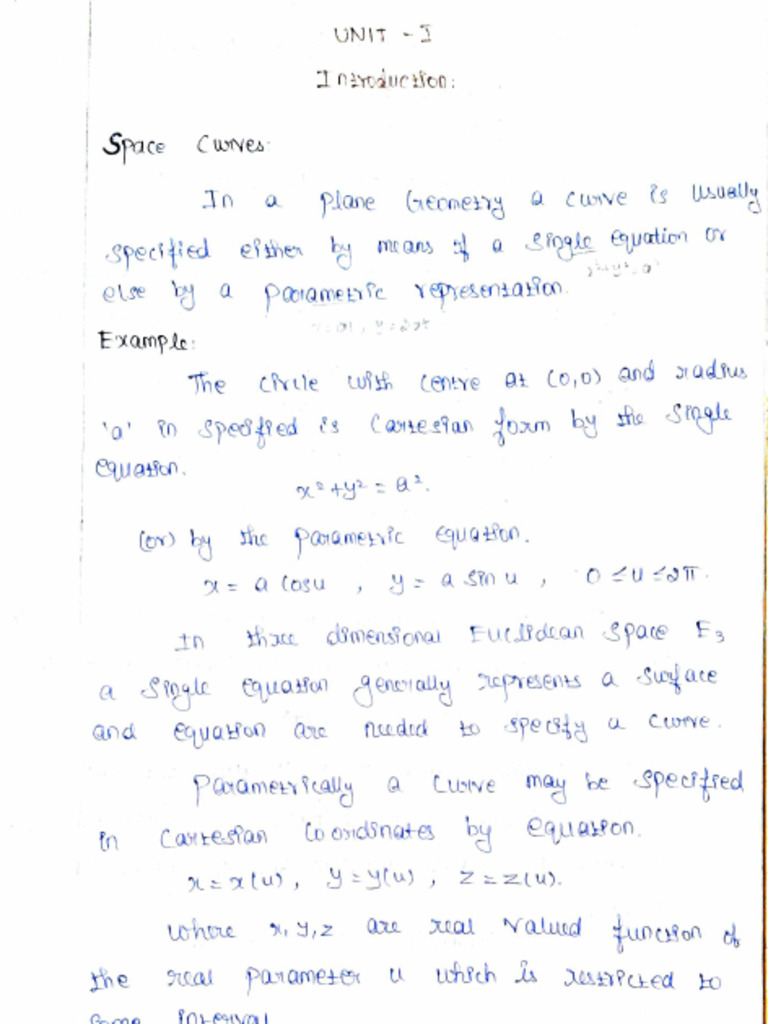 UNIT - I
Introduction:
Space Curves:
In a plane Geometry a curve is usually
specified either by means of a single equation or
x²+y²=a²
else by a parametric representation.
Example:
The circle with centre at (0,0) and radius
'a' in specified is Cartesian form by the single
equation.
x² + y² = a².
(or) by the parametric equation.
x = a cosu , y = a sin u , 0 ≤ u ≤ 2π.
In three dimensional Euclidean Space E₃
a single equation generally represents a surface
and equation are needed to specify a curve.
Parametrically a curve may be specified
in Cartesian Coordinates by equation.
x = x(u), y = y(u), z = z(u).
where x, y, z are real valued function of
the real parameter u which is restricted to
some interval